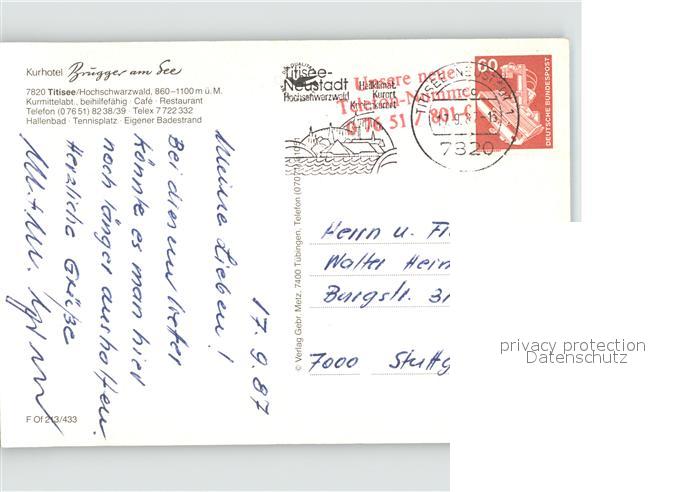 Kurhotel Brugger am See
7820 Titisee/Hochschwarzwald, 860–1100 m ü. M.
Kurmittelabt., beihilfefähig · Café · Restaurant
Telefon (0 76 51) 82 38/39 · Telex 7 722 332
Hallenbad · Tennisplatz · Eigener Badestrand
Titisee-
Neustadt
Hochschwarzwald
Heilklimat.
Kurort
Unsere neue
Telefon-Nummer
0 76 51 / 801-0
TITISEE-NEUSTADT 1
7820
60
DEUTSCHE BUNDESPOST
17.9.87
Meine Lieben!
Bei diesem Wetter
könnte es man hier
noch länger aushalten.
Herzliche Grüße
© Verlag Gebr. Metz, 7400 Tübingen, Telefon
Herrn u.
Walter
Burgstr. 31
7000 Stuttg
F Of 213/433
privacy protection
Datenschutz